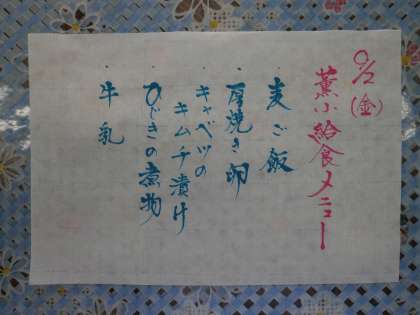 9/2(金)
薫小給食メニュー
・麦ご飯
・厚焼き卵
・キャベツの
キムチ漬け
・ひじきの煮物
・牛乳